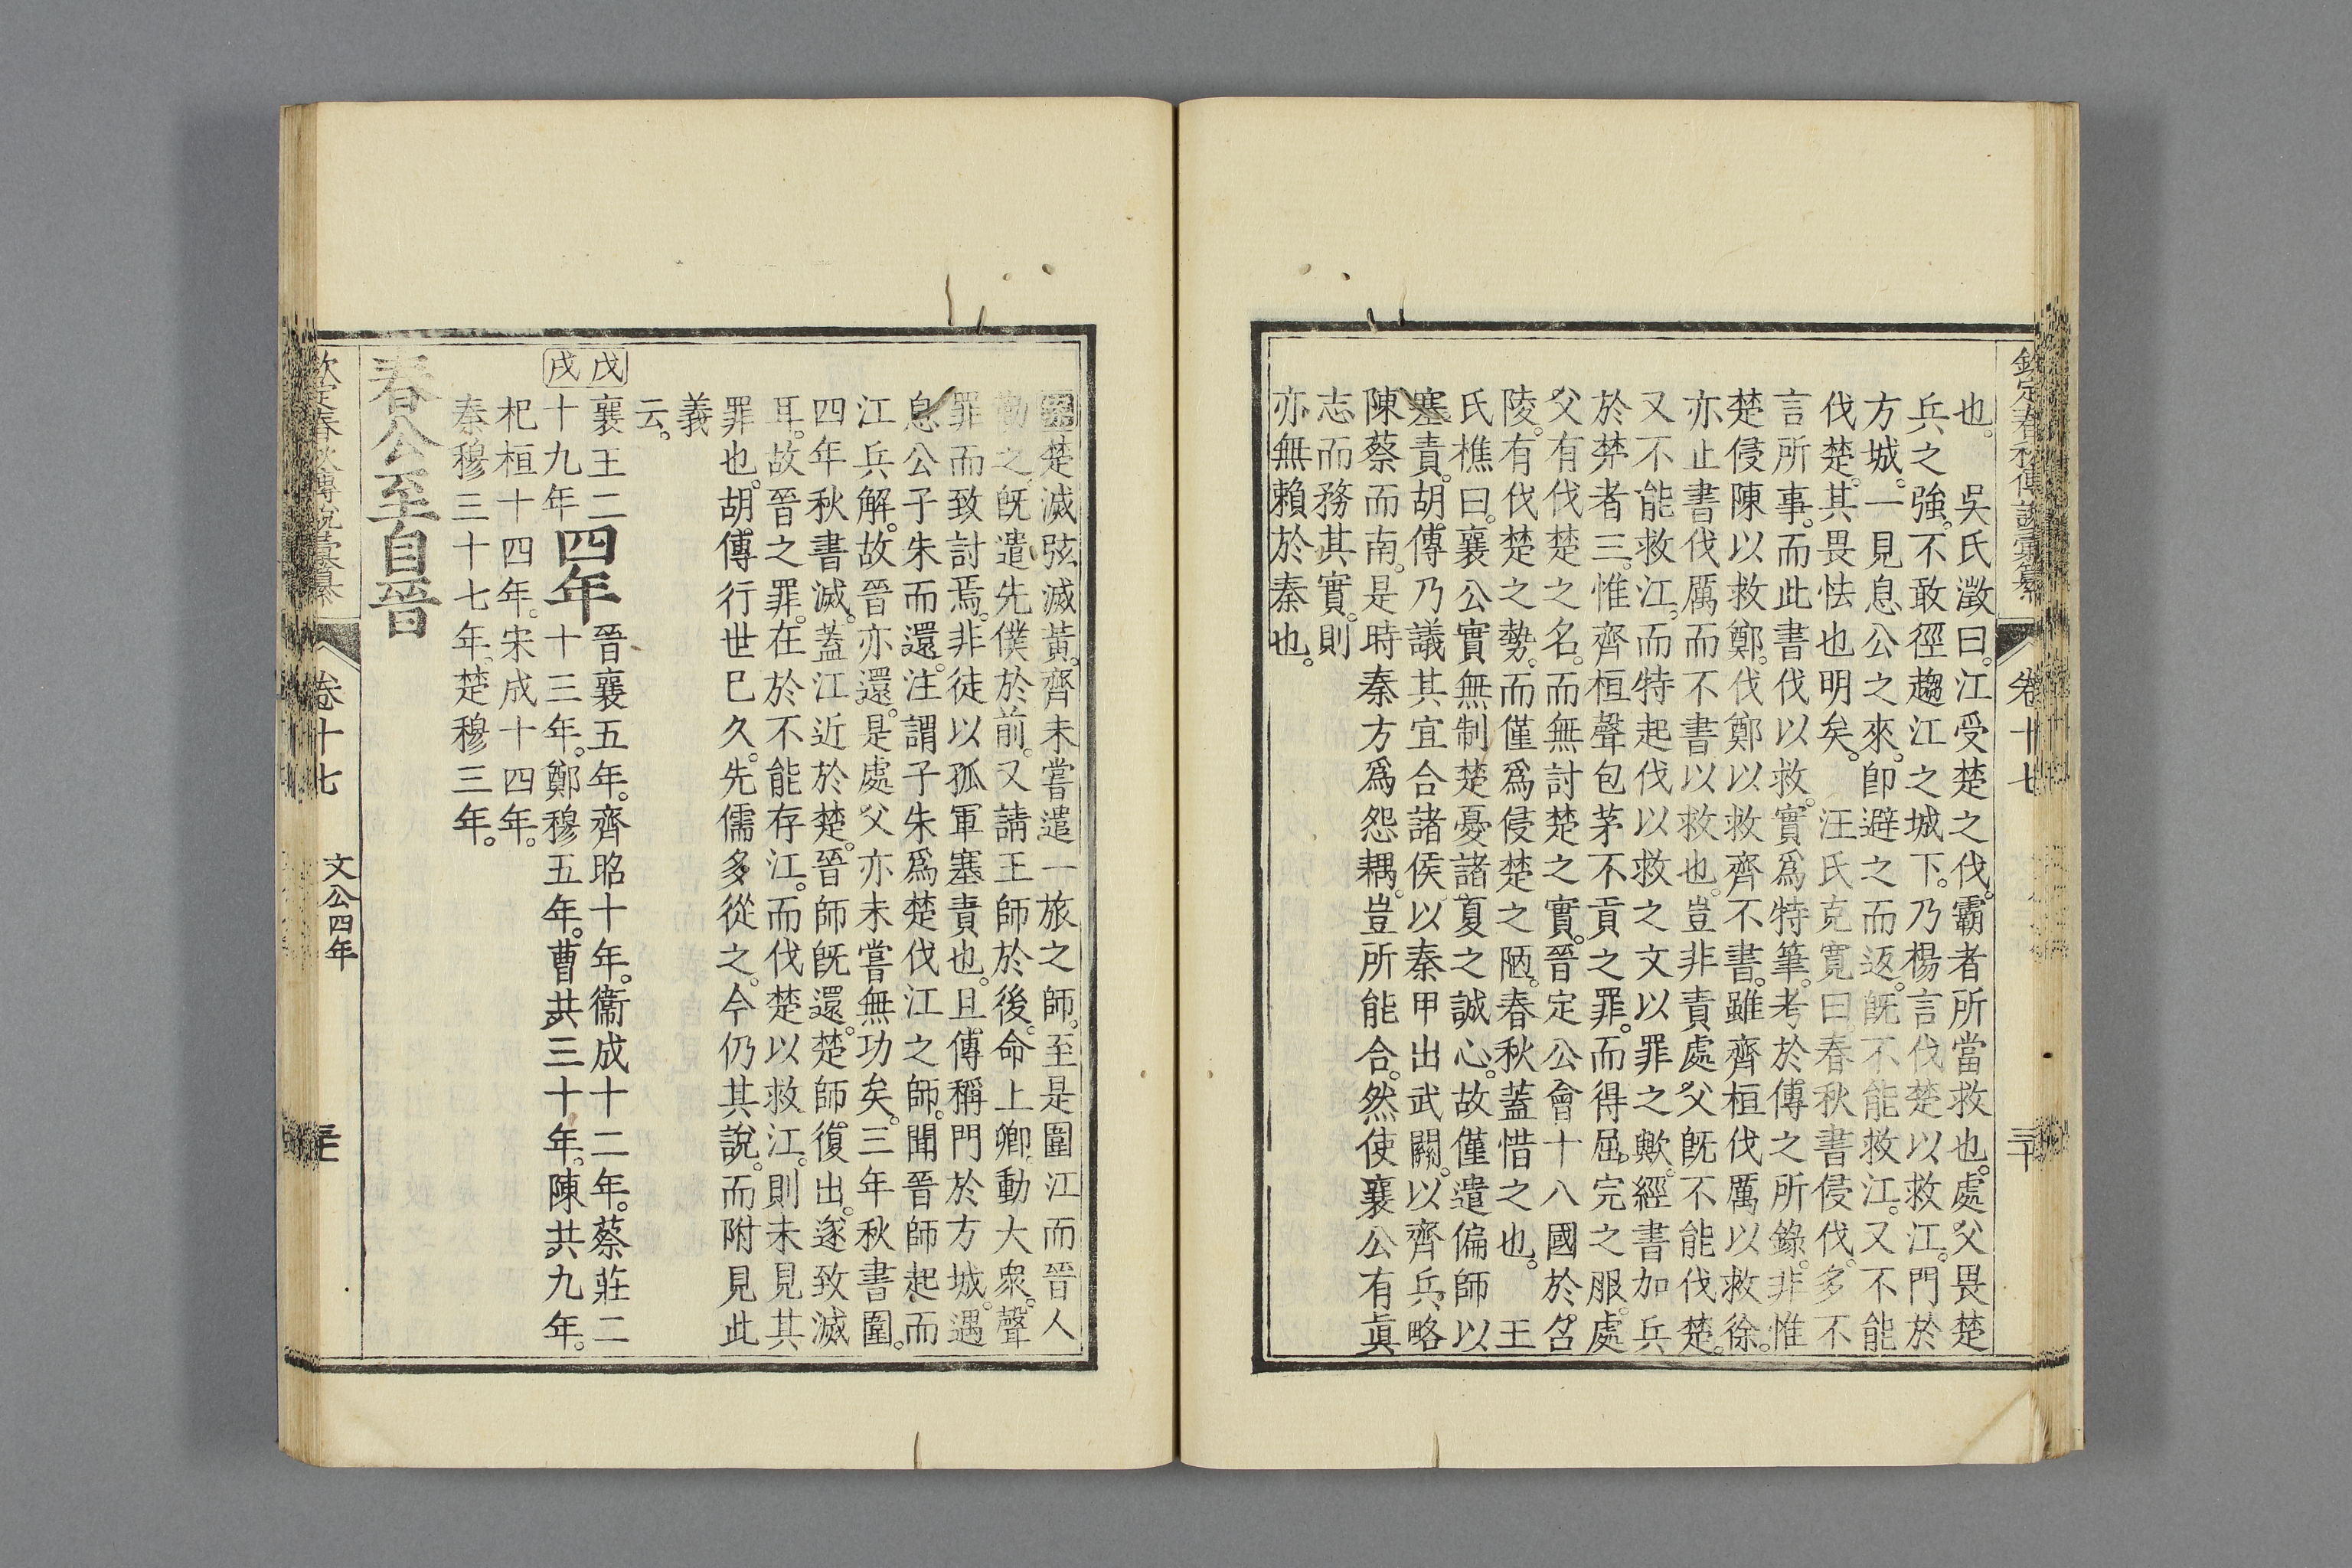 欽定春秋傳說彙纂 卷十七 三十
也。 吳氏澂曰。江受楚之伐。霸者所當救也。處父畏楚
兵之強。不敢徑趨江之城下。乃楊言伐楚以救江。門於
方城。一見息公之來。卽避之而返。旣不能救江。又不能
伐楚。其畏怯也明矣。 汪氏克寬曰。春秋書侵伐。多不
言所事。而此書伐以救。實爲特筆。考於傳之所錄。非惟
楚侵陳以救鄭。伐鄭以救齊不書。雖齊桓伐厲以救徐。
亦止書伐厲而不書以救也。豈非責處父旣不能伐楚。
又不能救江。而特起伐以救之文以罪之歟。經書加兵
於楚者三。惟齊桓聲包茅不貢之罪。而得屈完之服。處
父有伐楚之名。而無討楚之實。晉定公會十八國於召
陵。有伐楚之勢。而僅爲侵楚之陋。春秋蓋惜之也。 王
氏樵曰。襄公實無制楚憂諸夏之誠心。故僅遣偏師以
塞責。胡傳乃議其宜合諸侯。以秦甲出武關。以齊兵略
陳蔡而南。是時秦方爲怨耦。豈所能合。然使襄公有眞
志而務其實。則
亦無賴於秦也。
楚滅弦滅黃。齊未嘗遣一旅之師。至是圍江而晉人
勤之。旣遣先僕於前。又請王師於後。命上卿。動大衆。聲
罪而致討焉。非徒以孤軍塞責也。且傳稱門於方城。遇
息公子朱而還。注謂子朱爲楚伐江之師。聞晉師起而
江兵解。故晉亦還。是處父亦未嘗無功矣。三年秋書圍。
四年秋書滅。蓋江近於楚。晉師旣還。楚師復出。遂致滅
耳。故晉之罪。在於不能存江。而伐楚以救江。則未見其
罪也。胡傳行世已久。先儒多從之。今仍其說。而附見此
義
云。
戊戌 襄王二十九年 四年 晉襄五年。齊昭十年。衞成十二年。蔡莊二
十三年。鄭穆五年。曹共三十年。陳共九年。
杞桓十四年。宋成十四年。
秦穆三十七年。楚穆三年。
春公至自晉
欽定春秋傳說彙纂 卷十七 文公四年